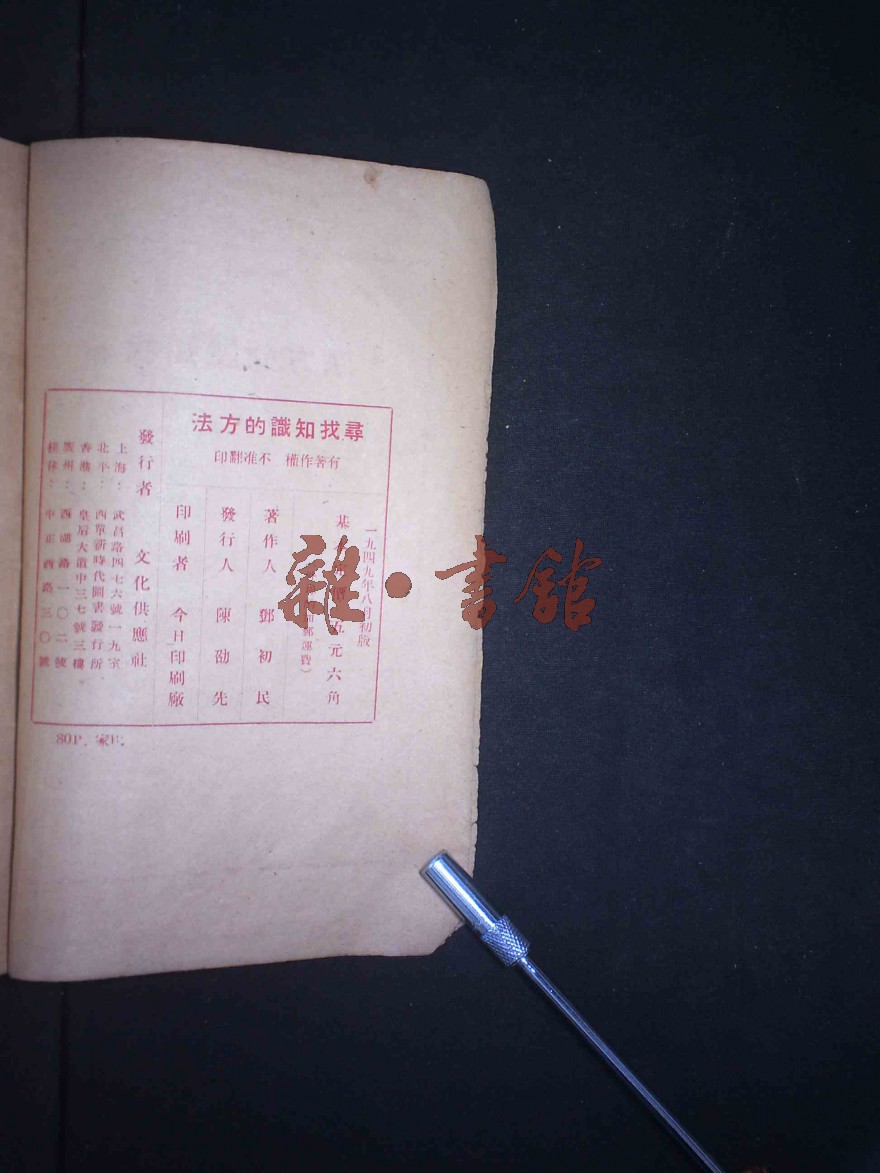 尋找知識的方法
有著作權 不准翻印
一九四九年八月初版
基 五元六角
郵運費）
著作人 鄧初民
發行人 陳劭先
印刷者 今日印刷廠
發行者 文化供應社
上海：武昌路四七六號一九室
北平：西單新時代圖書發行所
香港：皇后大道中三七號三樓
廣州：西湖路一〇二號
桂林：中正西路三〇號
80P.家F.
雜·書館